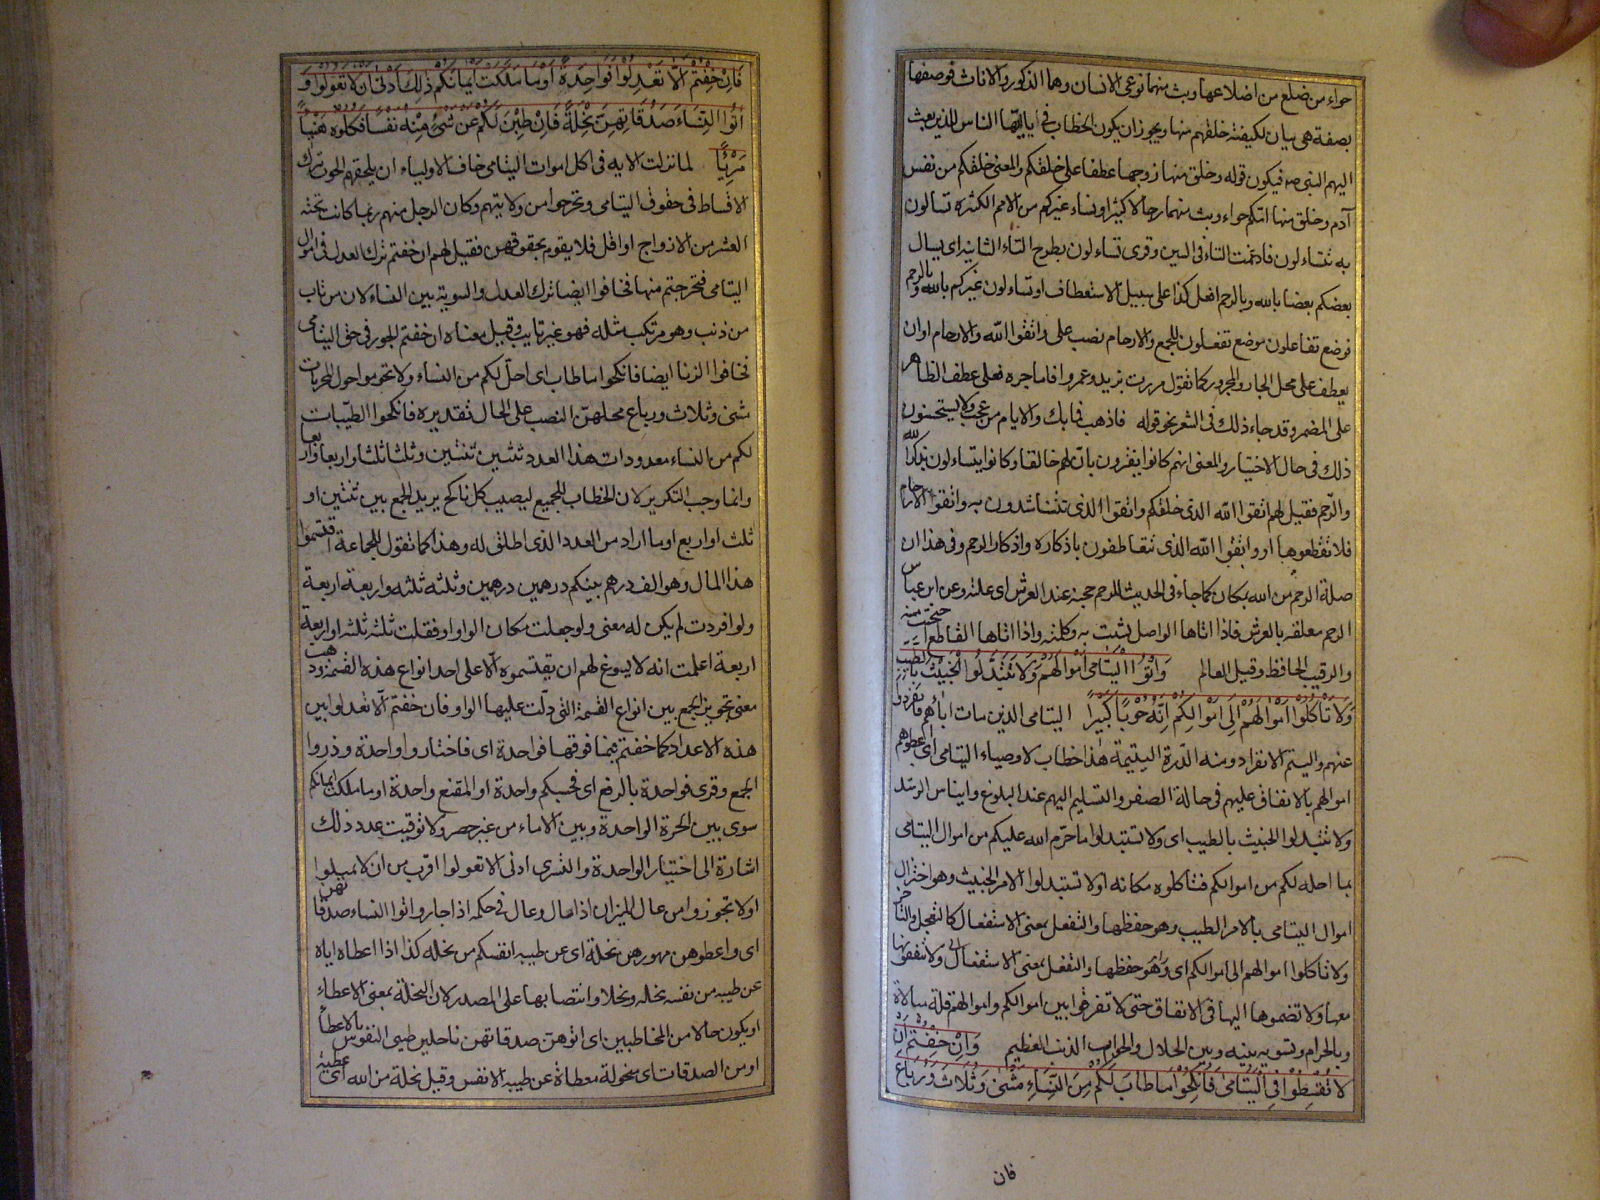 حواء من ضلع من اضلاعها وبث منهما نوعى الانسان وهما الذكور والاناث فوصفها
بصفة هى بيان لكيفية خلقهم منها ويجوز ان يكون الخطاب فى يا ايها الناس للذين بعث
اليهم النبى صه فيكون قوله وخلق منها زوجها عطفا على خلقكم والمعنى خلقكم من نفس
آدم وخلق منها امكم حواء وبث منهما رجالا كثيرا ونساء غيركم من الامم الكثره تساءلون
به تتساءلون فادغمت التاء فى السين وقرى تساءلون بطرح التاء الثانيه اى يسال
بعضكم بعضا بالله وبالرحم افعل كذا على سبيل الاستعطاف او تساءلون غيركم بالله وبالرحم
فوضع تفاعلون موضع تفعلون للجمع والارحام نصب على واتقوا الله والارحام او ان
يعطف على محل الجار والمجرور كما تقول مررت بزيد وعمروا فاما جره فعلى عطف الظاهر
على المضمر وقد جاء ذلك فى الشعر نحو قوله فاذهب فما بك والايام من عجب ولا يستحسنون
ذلك فى حال الاختيار والمعنى انهم كانوا يقرون بان لهم خالقا وكانوا يتساءلون بذكر الله
والرحم فقيل لهم اتقوا الله الذى خلقكم واتقوا الذى تتناشدون به واتقوا الارحام
فلا تقطعوها او واتقوا الله الذى تتعاطفون باذكاره واذكار الرحم وفى هذا ان
صلة الرحم من الله بمكان كما جاء فى الحديث للرحم حجنة عند العرش اى علته وعن ابن عباس
الرحم معلقه بالعرش فاذا اتاها الواصل بشت به وكلمته واذا اتاها القاطع احتجبت منه
والرقيب الحافظ وقيل العالم واتوا اليتامى اموالهم ولا تتبدلوا الخبيث بالطيب
ولا تاكلوا اموالهم الى اموالكم انه كان حوبا كبيرا اليتامى الذين مات اباؤهم فانفردوا
عنهم واليتم الانفراد ومنه الدرة اليتيمة هذا خطاب لاوصياء اليتامى اى اعطوهم
اموالهم بالانفاق عليهم فى حالة الصغر والتسليم اليهم عند البلوغ وايناس الرشد
ولا تتبدلوا الخبيث بالطيب اى ولا تستبدلوا ما حرم الله عليكم من اموال اليتامى
بما احله لكم من اموالكم فتاكلوه مكانه او لا تستبدلوا الامر الخبيث وهو اختزال
اموال اليتامى بالامر الطيب وهو حفظها والتفعل بمعنى الاستفعال كالتعجل والتاخر
ولا تاكلوا اموالهم الى اموالكم اى وهو حفظها والتفعل بمعنى الاستفعال ولا تنفقونها
معها ولا تضموها اليها فى الانفاق حتى لا تفرقوا بين اموالكم واموالهم قلة مبالاة
وبالحرام وتسويه بينه وبين الحلال والحوب الذنب العظيم وان خفتم ان
لا تقسطوا فى اليتامى فانكحوا ما طاب لكم من النساء مثنى وثلاث ورباع
فان
فان خفتم الا تعدلوا فواحدة او ما ملكت ايمانكم ذلك ادنى ان لا تعولوا و
اتوا النساء صدقاتهن نحلة فان طبن لكم عن شىء منه نفسا فكلوه هنيئا
مريئا لما نزلت الايه فى اكل اموات اليتامى خاف الاولياء ان يلحقهم الحوب بترك
الاقساط فى حقوق اليتامى وتحرجوا من ولايتهم وكان الرجل منهم ربما كانت تحته
العشر من الازواج او اقل فلا يقوم بحقوقهن فقيل لهم ان خفتم ترك العدل فى اموال
اليتامى فتحرجتم منها فخافوا ايضا ترك العدل والسوية بين النساء لان من تاب
من ذنب وهو مرتكب مثله فهو غير تايب وقيل معناه ان خفتم الجور فى حق اليتامى
فخافوا الزنا ايضا فانكحوا ما طاب اى احل لكم من النساء ولا تحوموا حول المحرمات
مثنى وثلاث ورباع محلهن النصب على الحال تقديره فانكحوا الطيبات
لكم من النساء معدودات هذا العدد ثنتين ثنتين وثلثا ثلثا واربعا واربعا
وانما وجب التكرير لان الخطاب للجميع ليصيب كل ناكح يريد الجمع بين ثنتين او
ثلث او اربع او ما اراد من العدد الذى اطلق له وهذا كما تقول للجماعة اقتسموا
هذا المال وهو الف درهم بينكم درهمين درهمين وثلثه ثلثه واربعة اربعة
ولو افردت لم يكن له معنى ولو جعلت مكان الواو او فقلت ثلثه ثلثه او اربعة
اربعة اعلمت انه لا يسوغ لهم ان يقتسموه الا على احد انواع هذه القسمة وذهب
معنى تجويز الجمع بين انواع القسمة التى دلت عليها الواو فان خفتم الا تعدلوا بين
هذه الاعداد كما خفتم فيما فوقها فواحدة اى فاختاروا واحدة وذروا
الجمع وقرى فواحدة بالرفع اى فحسبكم واحدة او المقنع واحدة او ما ملكت ايمانكم
سوى بين الحرة الواحدة وبين الاماء من غير حصر ولا توقيت عدد ذلك
اشارة الى اختيار الواحدة والتسرى ادنى الا تعولوا اقرب من ان لا تميلوا
او لا تجوزوا من عال الميزان اذا مال وعال فى حكمه اذا جار واتوا النساء صدقاتهن
اى واعطوهن مهورهن نحلة اى عن طيبه انفسكم من نحله كذا اذا اعطاه اياه
عن طيبه من نفسه نحله ونحلا وانتصابها على المصدر لان النحلة بمعنى الاعطاء
او يكون حالا من المخاطبين اى اتوهن صدقاتهن ناحلين طيبى النفوس بالاعطاء
او من الصدقات اى منحولة معطاة عن طيبه الانفس وقيل نحلة من الله اى عطية